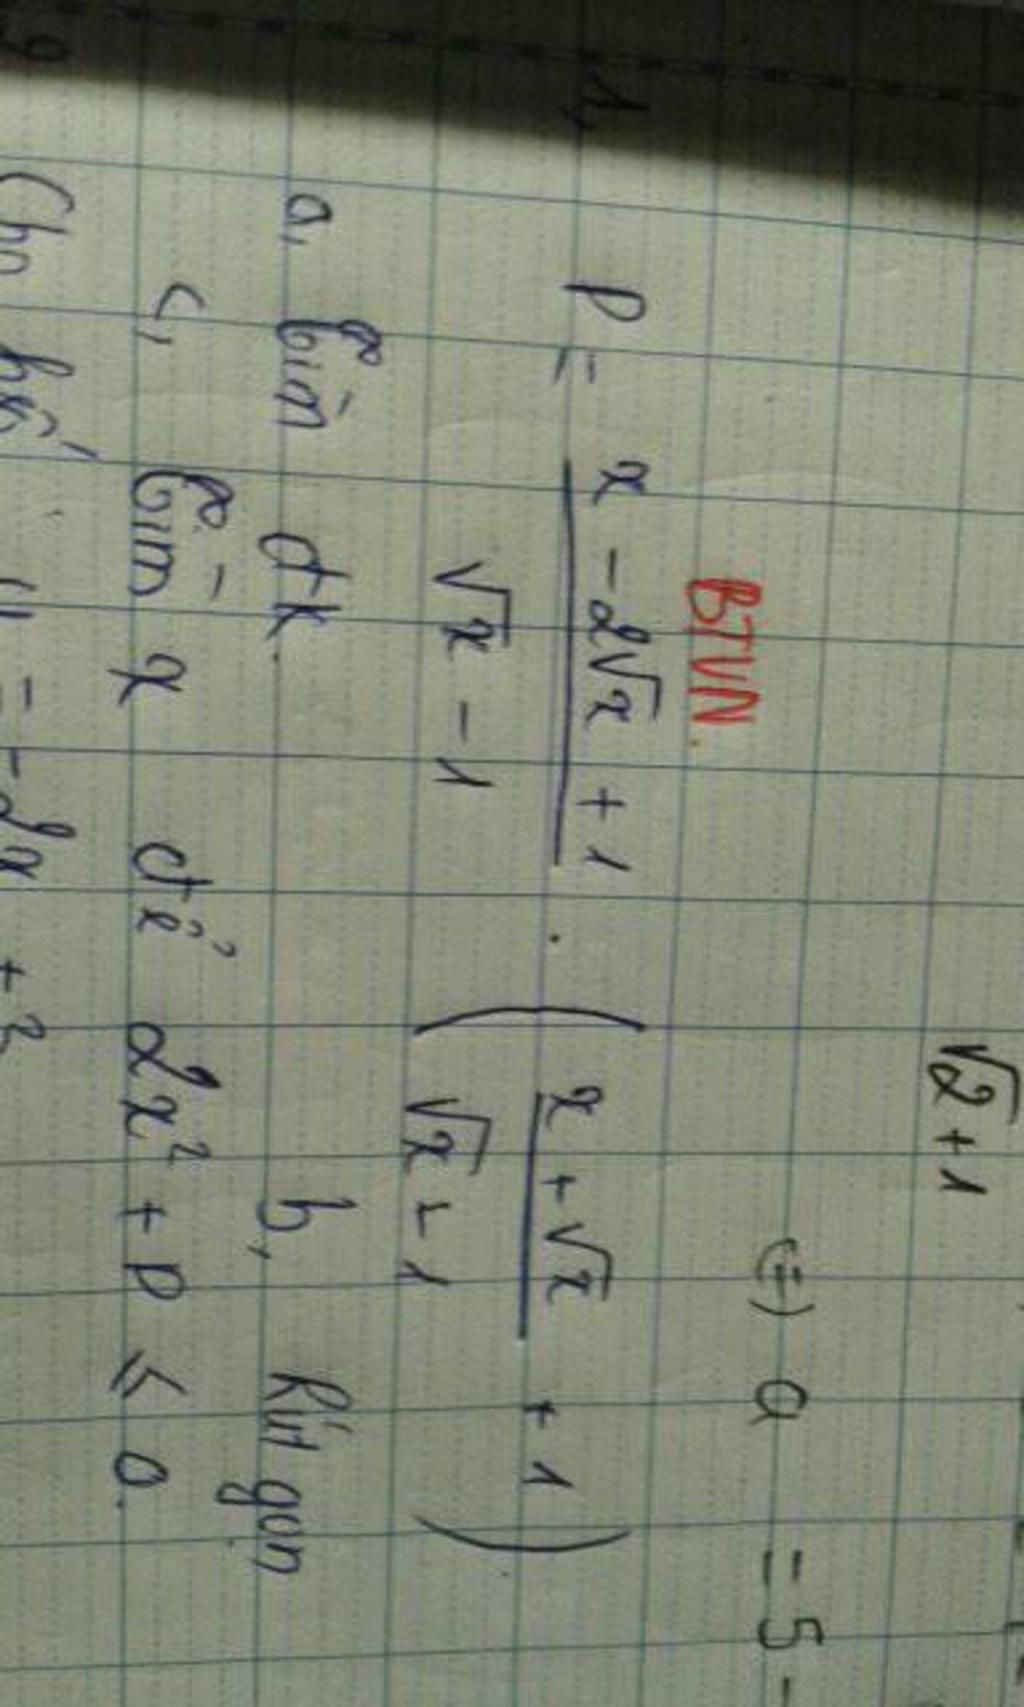 √2 + 1
(=) a = 5 -
BTVN.
1, P = (x - 2√x + 1)/(√x - 1) . ((x + √x)/(√x + 1) + 1)
a, tìm đk. b, Rút gọn
c, tìm x để 2x² + P ≤ 0.
Cho y = -2x + 3